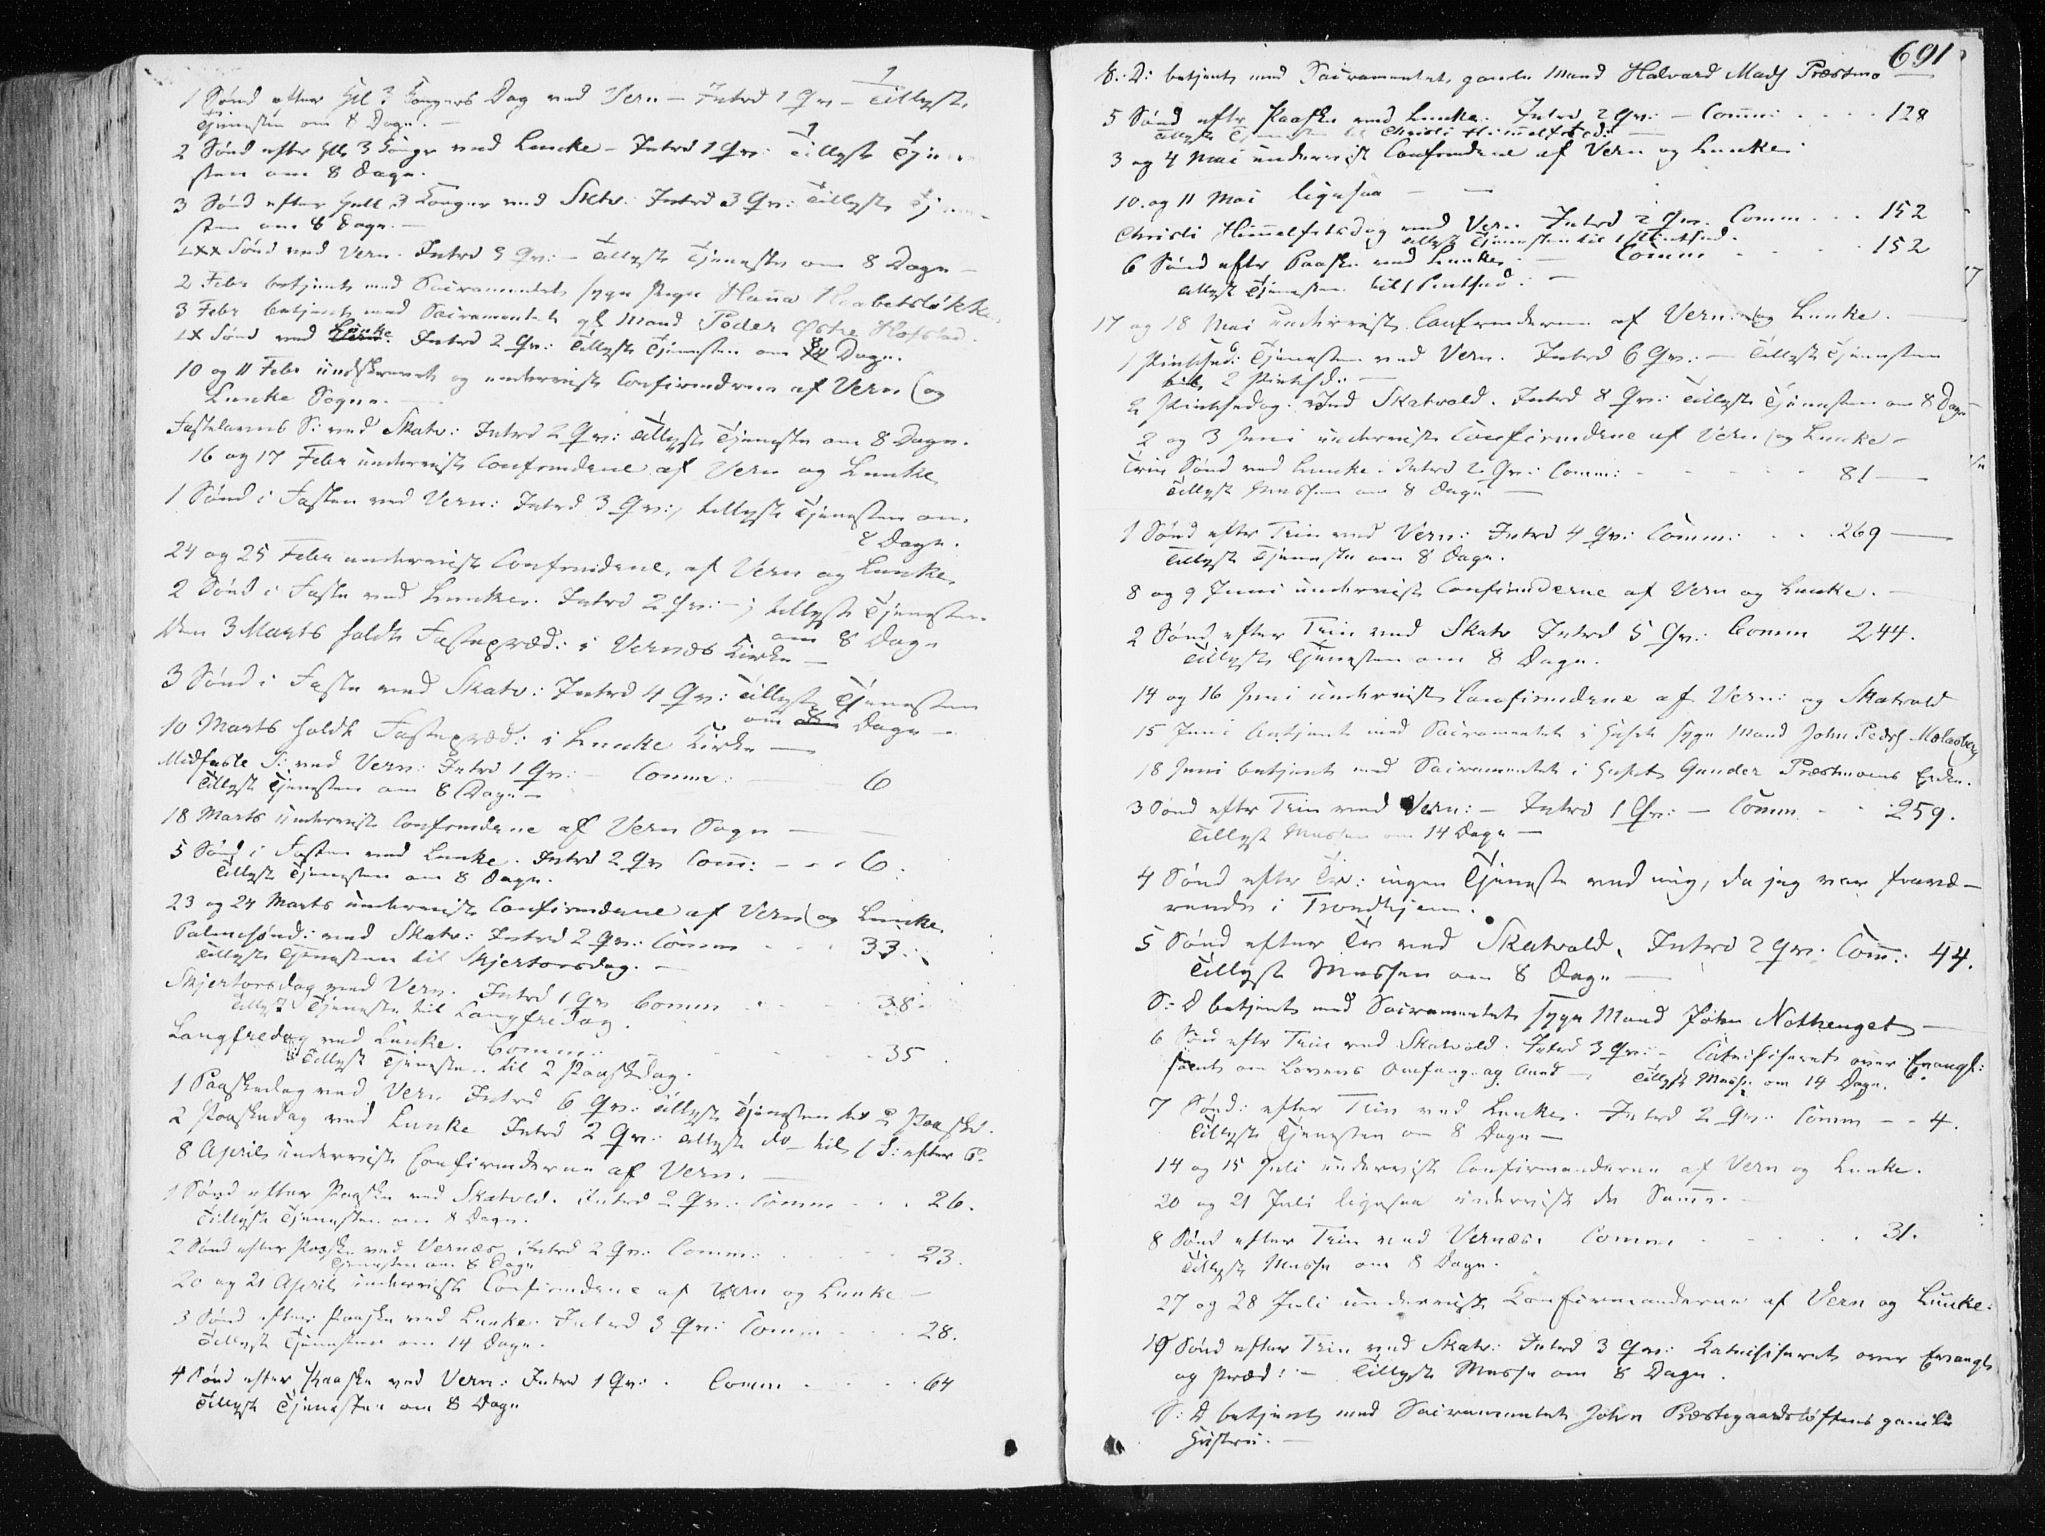 1 Sønd efter Hll 3 Kongers Dag ved Vern — Introd 1 Qv — Tillyst
Tjenesten om 8 Dage. —
2 Sønd efter Hll 3 Konge ved Lunke — Introd 1 Qv: Tillyst Tjene
sten om 8 Dage.
3 Sønd efter Hell 3 Konger ved Skatv: Introd 3 Qv: Tillyst Tjene
sten om 8 Dage. —
LXX Sønd ved Vern. Introd 3 Qv: — Tillyst Tjenesten om 8 Dage —
2 Febr betjent med Sacramentet syge Pige Hanna Haabetsløkke
3 Febr betjent med Sacramentet gl Mand Peder Østre Hofstad.
LX Sønd ved Lunke. Introd 2 Qv: Tillyst Tjenesten om 8 Dage.
10 og 11 Febr indskrevet og underviist Confirmdrene af Vern og
Lunke Sogne. —
Fastelavns S: ved Skatv: Introd 2 Qv: Tillyst Tjenesten om 8 Dage.
16 og 17 Febr underviist Confrmdrene af Vern og Lunke
1 Sønd i Fasten ved Vern: Introd 3 Qv:, tillyst Tjenesten om
8 Dage.
24 og 25 Febr underviist Confrmdrene af Vern og Lunke.
2 Sønd i Faste ved Lunke. Introd 2 Qv: —; tillyst Tjenesten
om 8 Dage
Den 3 Marts holdt Fastepræd: i Vernæs Kirke —
3 Sønd i Faste ved Skatv: Introd 4 Qv: Tillyst Tjenesten
om Dage —
10 Marts holdt Fastepræd: i Lunke Kirke —
Midfaste S: ved Vern: Introd 1 Qv: — Comm: — 6
Tillyst Tjenesten om 8 Dage —
18 Marts underviist Confrmdrene af Vern Sogn —
5 Sønd i Fasten ved Lunke. Introd 2 Qv Com: — . . 6.
Tillyst Tjenesten om 8 Dage.
23 og 24 Marts underviist Confirmdrene af Vern og Lunke
Palmesønd: ved Skatv: Introd 2 Qv: Comm . . . 33.
Tillyst Tjenesten til Skjertorsdag. —
Skjertorsdag ved Vern. Introd 1 Qv Comm . . . 38.
Tillyst Tjenesten til Langfredag.
Langfredag ved Lunke. Comm: . . . 35
Tillyst Tjenesten til 2 Paaskdag.
1 Paaskedag ved Vern Introd 6 Qv: tillyst Tjenesten til 2 Paaskd.
2 Paaskedag ved Lunke Introd 2 Qv: tillyst do — til 1 S: efter P.
8 April underviist Confirmderne af Vern. —
1 Sønd efter Paaske ved Skatvold. Introd 2 Qv: Comm . . . 26.
Tillyst Tjenesten om 8 Dage.
2 Sønd efter Paaske ved Vernæs. Introd 2 Qv: Comm: . . . 23.
Tjenesten om 8 Dage
20 og 21 April underviist Confirmdrene af Vern og Lunke —
3 Sønd efter Paaske ved Lunke. Introd 3 Qv: Comm . . . 28.
Tillyst Tjenesten om 14 Dage.
4 Sønd efter Paaske ved Vern: Introd 1 Qv: . Comm . . . . 64
Tillyst Tjenesten om 8 Dage
691
S: D: betjent med Sacramentet gamle Mand Halvard Mads Præstmo
5 Sønd efter Paaske ved Lunke. Introd 2 Qv: — Comm: . . . . 128
Tillyst Tjenesten til Christi Himmelfrtsd: —
3 og 4 Mai underviist Confrmdrene af Vern og Lunke.
10. og 11 Mai ligesaa — —
Christi Himmelfrtsdag ved Vern Introd 2 Qv. Comm . . . 152
tillyst Tjenesten til 6 Sønd.
6 Sønd efter Paaske ved Lunke. — Comm . . . 152
tillyst Tjenesten til 1 Pintsed: —
17 og 18 Mai underviist Confrmderne af Vern: og Lunke. —
1 Pintsed: Tjenesten ved Vern. Introd 6 Qv: — Tillyst Tjenesten
til 2 Pintsd: —
2 Pintsedag ved Skatvold. Introd 8 Qv: Tillyst Tjenesten om 8 Dage
2 og 3 Juni underviist Confirmdrne af Vern og Lunke —
Trin Sønd ved Lunke: Introd 2 Qv: Comm: . . . 81 —
Tillyst Messen om 8 Dage —
1 Sønd efter Trin ved Vern: Introd 4 Qv: Comm: . . . 269 —
Tillyst Tjenesten om 8 Dage.
8 og 9 Juni underviist Confirmderne af Vern og Lunke. —
2 Sønd efter Trin ved Skatv Introd 5 Qv: Comm 244.
Tillyst Tjenesten om 8 Dage.
14 og 16 Juni underviist Confirmdrne af Vern: og Skatvold
15 Juni betjent med Sacramentet i Huset syge Mand John Peders Molasberg
18 Juni betjent med Sacramentet i Huset Gunder Præstmoens Enke.
3 Sønd efter Trin ved Vern: — Introd 1 Qv: — Comm . . . 259.
Tillyst Messen om 14 Dage —
4 Sønd efter Tr: ingen Tjeneste ved mig, da jeg var fravæ-
rende i Trondhjem.
5 Sønd efter Tr ved Skatvold. Introd 2 Qv: Com: 44.
Tillyst Messen om 8 Dage —
S: D betjent med Sacramentet syge Mand John Nothenget —
6 Sønd efter Trin ved Skatvold. Introd 3 Qv: — Catechiseret over Evangl:
samt om Lovens Omfang og Aand —. Tillyst Messe om 14 Dage.
7 Sønd: efter Trin ved Lunke. Introd 2 Qv: Comm — . 4.
Tillyst Tjenesten om 8 Dage —
14 og 15 Juli underviist Confirmanderne af Vern og Lunke.
20 og 21 Juli ligesaa underviist de Samme. —
8 Sønd efter Trin ved Vernæs. Comm . . . 31.
Tillyst Messe om 8 Dage.
27 og 28 Juli underviist Konfirmanderne af Vern og Lunke.
10 Sønd efter Trin ved Skatv: Introd 3 Qv: Katechiseret over Evangl:
og Præd: — Tillyst Messe om 8 Dage.
S: D betjent med Sacramentet John Præstegaardsløftens gamle
Hustru. —